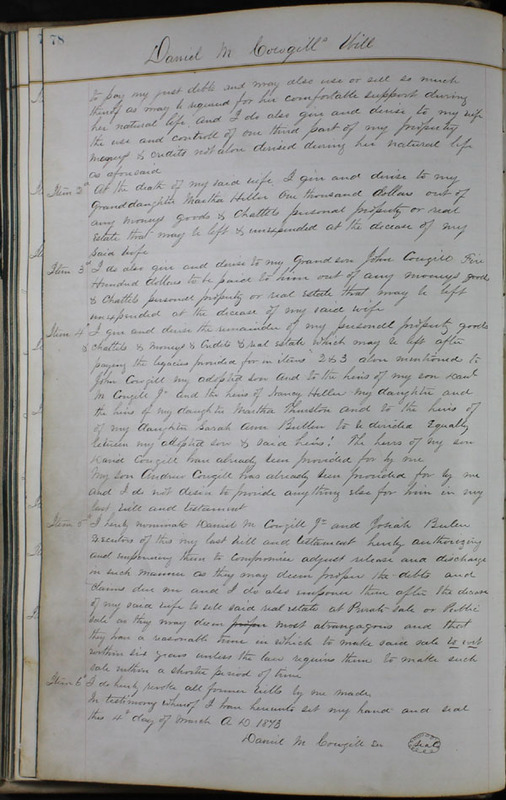 78
Daniel M Cowgill's Will
to pay my just debts and may also use or sell so much
thereof as may be required for her comfortable support during
her natural life. And I do also give and devise to my wife
the use and controll of one third part of my property
moneys & credits not above devised during her natural life
as aforesaid
Item 2" At the death of my said wife, I give and devise to my
Granddaughter Martha Heller One thousand dollars out of
any moneys goods & Chattels personal property or real
estate that may be left & unexpended at the decease of my
said wife
Item 3" I do also give and devise to my Grandson John Cowgill Five
Hundred dollars to be paid to him out of any moneys goods
& Chattels personal property or real estate that may be left
unexpended at the decease of my said wife
Item 4" I give and devise the remainder of my personell property goods
& chattels & moneys & Credits & real estate which may be left after
paying the legacies provided for in items 2 & 3 above mentioned to
John Cowgill my adopted son And to the heirs of my son Danl
M Cowgill Jr And the heirs of Nancy Heller my daughter and
the heirs of my daughter Martha and to the heirs of
of my daughter Sarah Ann Butler to be devided Equally
between my adopted son & said heirs! The heirs of my son
David Cowgill have already been provided for by me
My son Andrew Cowgill has already been provided for by me
And I do not desire to provide anything else for him in my
last will and testament
Item 5" I hereby nominate Daniel M Cowgill Jr and Josiah Butler
Executors of this my last will and testament hereby authorizing
and empowering them to compromise adjust release and discharge
in such manner as they may deem proper the debts and
claims due me and I do also empower them after the decease
of my said wife to sell said real estate at Private Sale or Public
sale as they may deem proper most advantageous and that
they have a reasonable time in which to make said sale to wit
within six years unless the law requires them to make such
sale within a shorter period of time
Item 6" I do hereby revoke all former wills by me made,
In testimony whereof I have hereunto set my hand and seal
this 4" day of March A D 1873
Daniel M Cowgill Sr
Seal